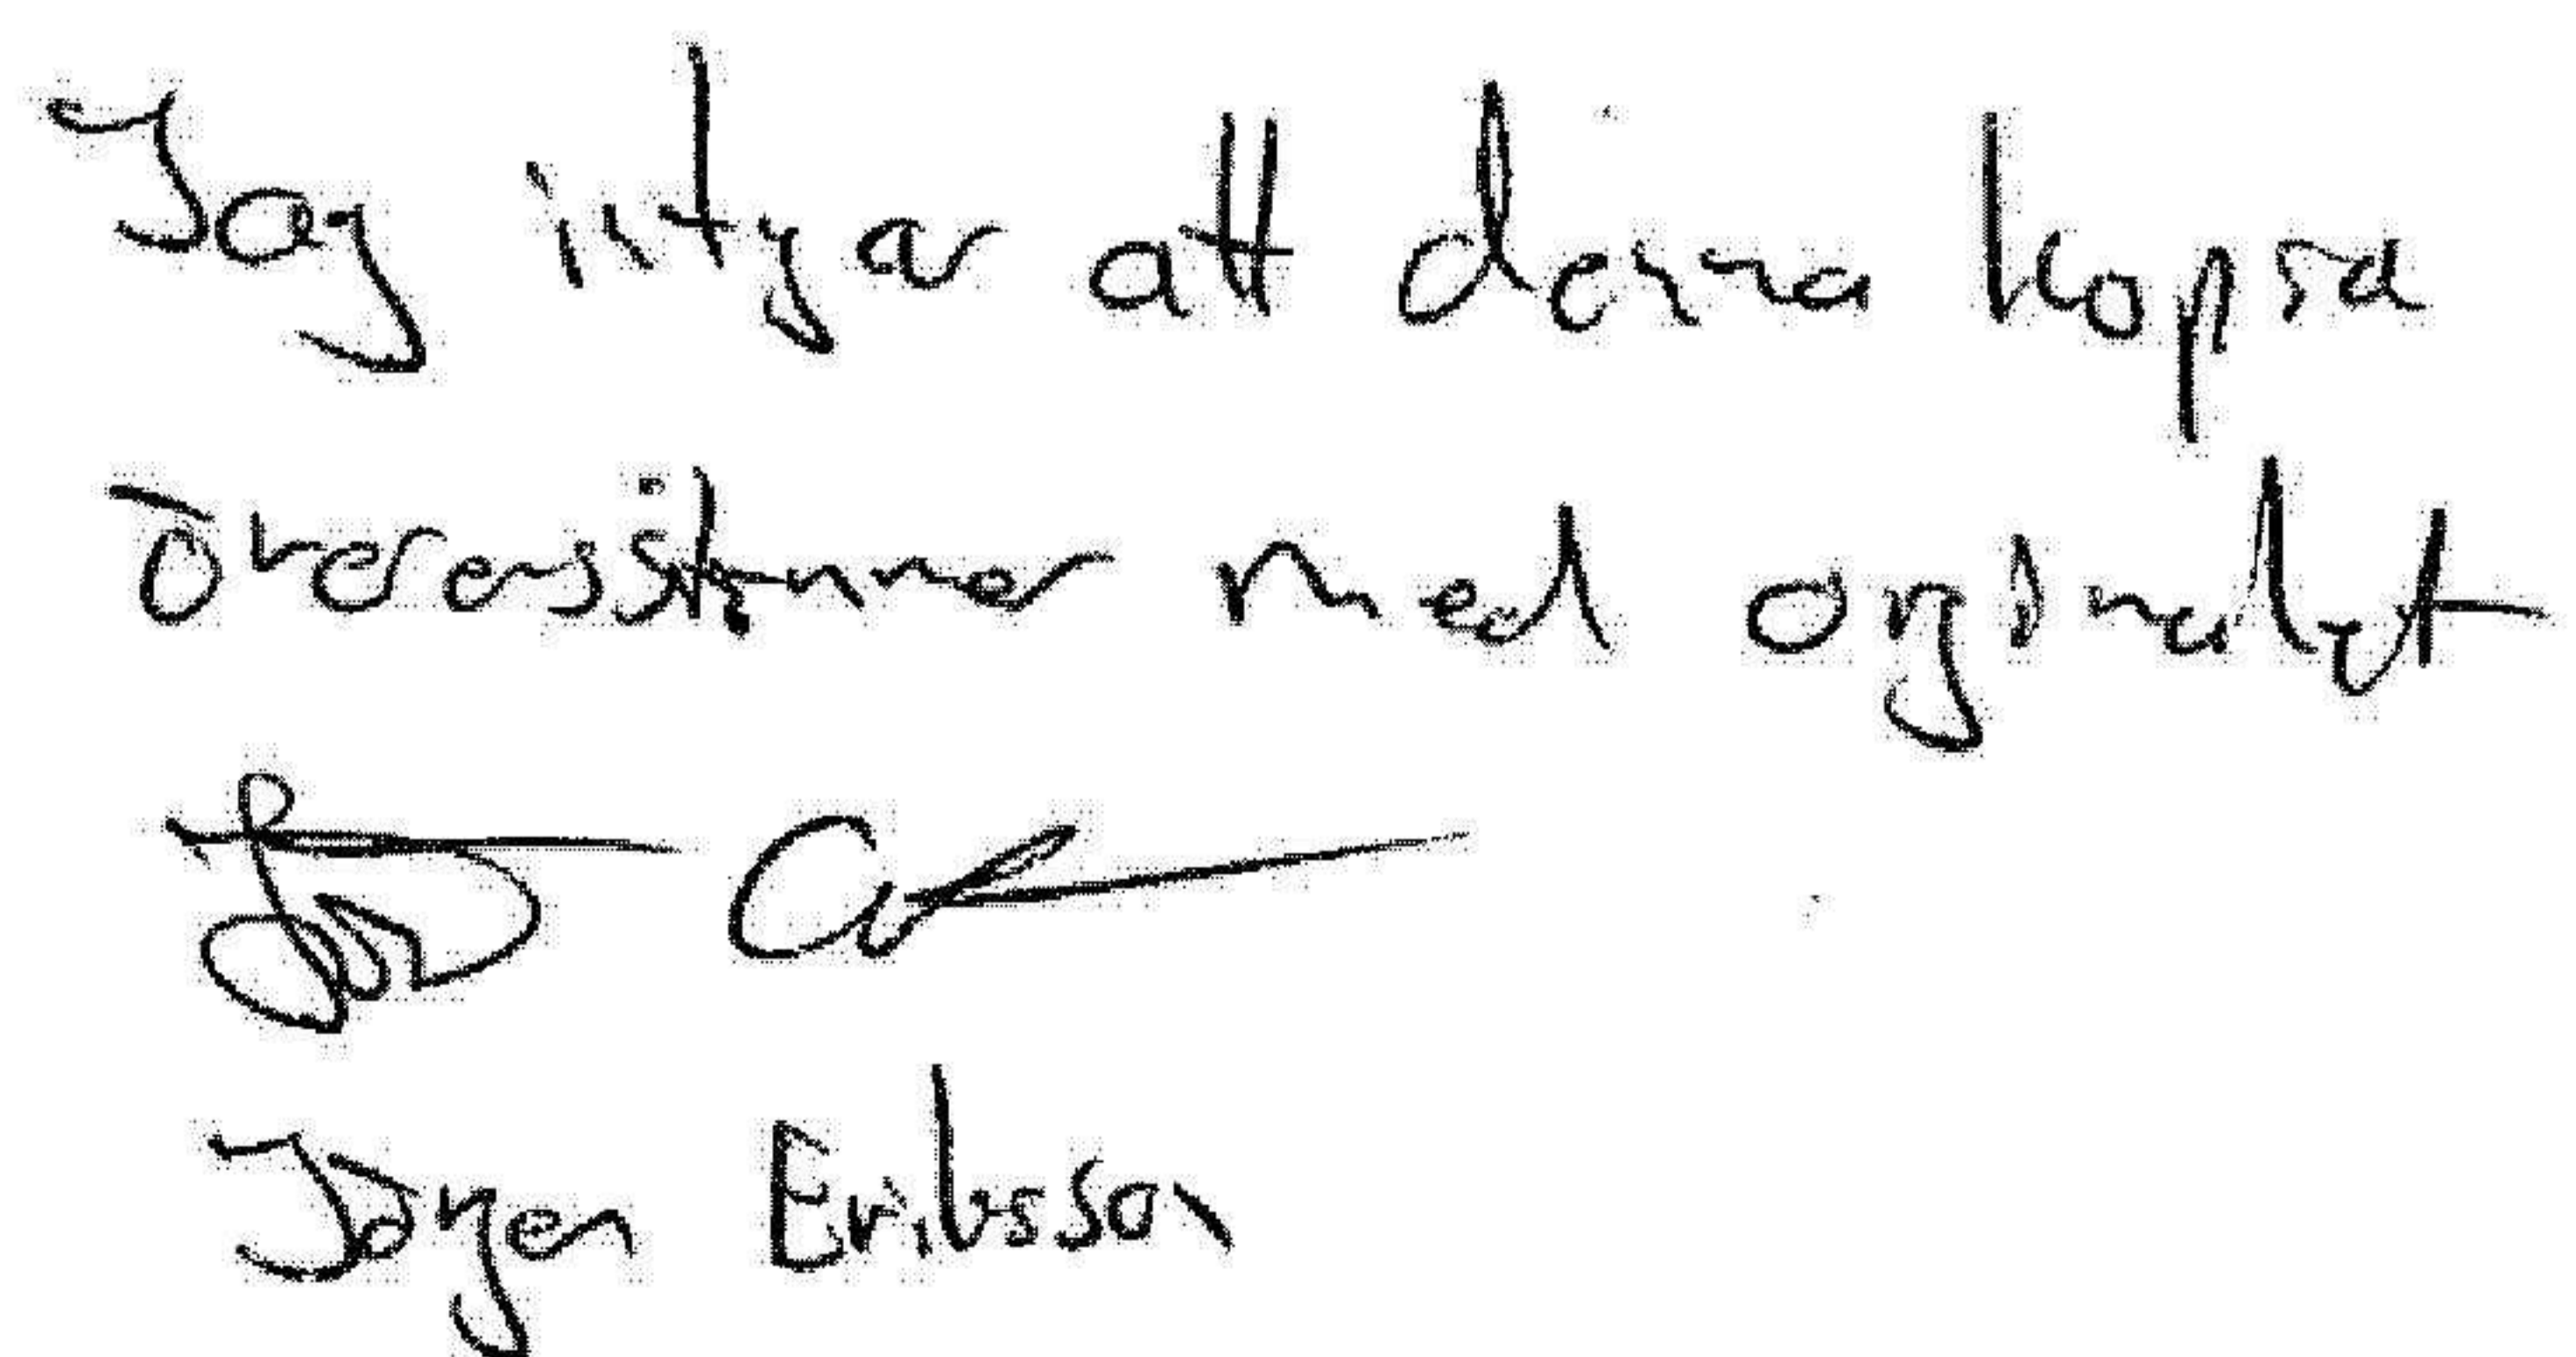 Jag intygar att denna kopia
överensstämmer med orginalet
Jörgen Eriksson